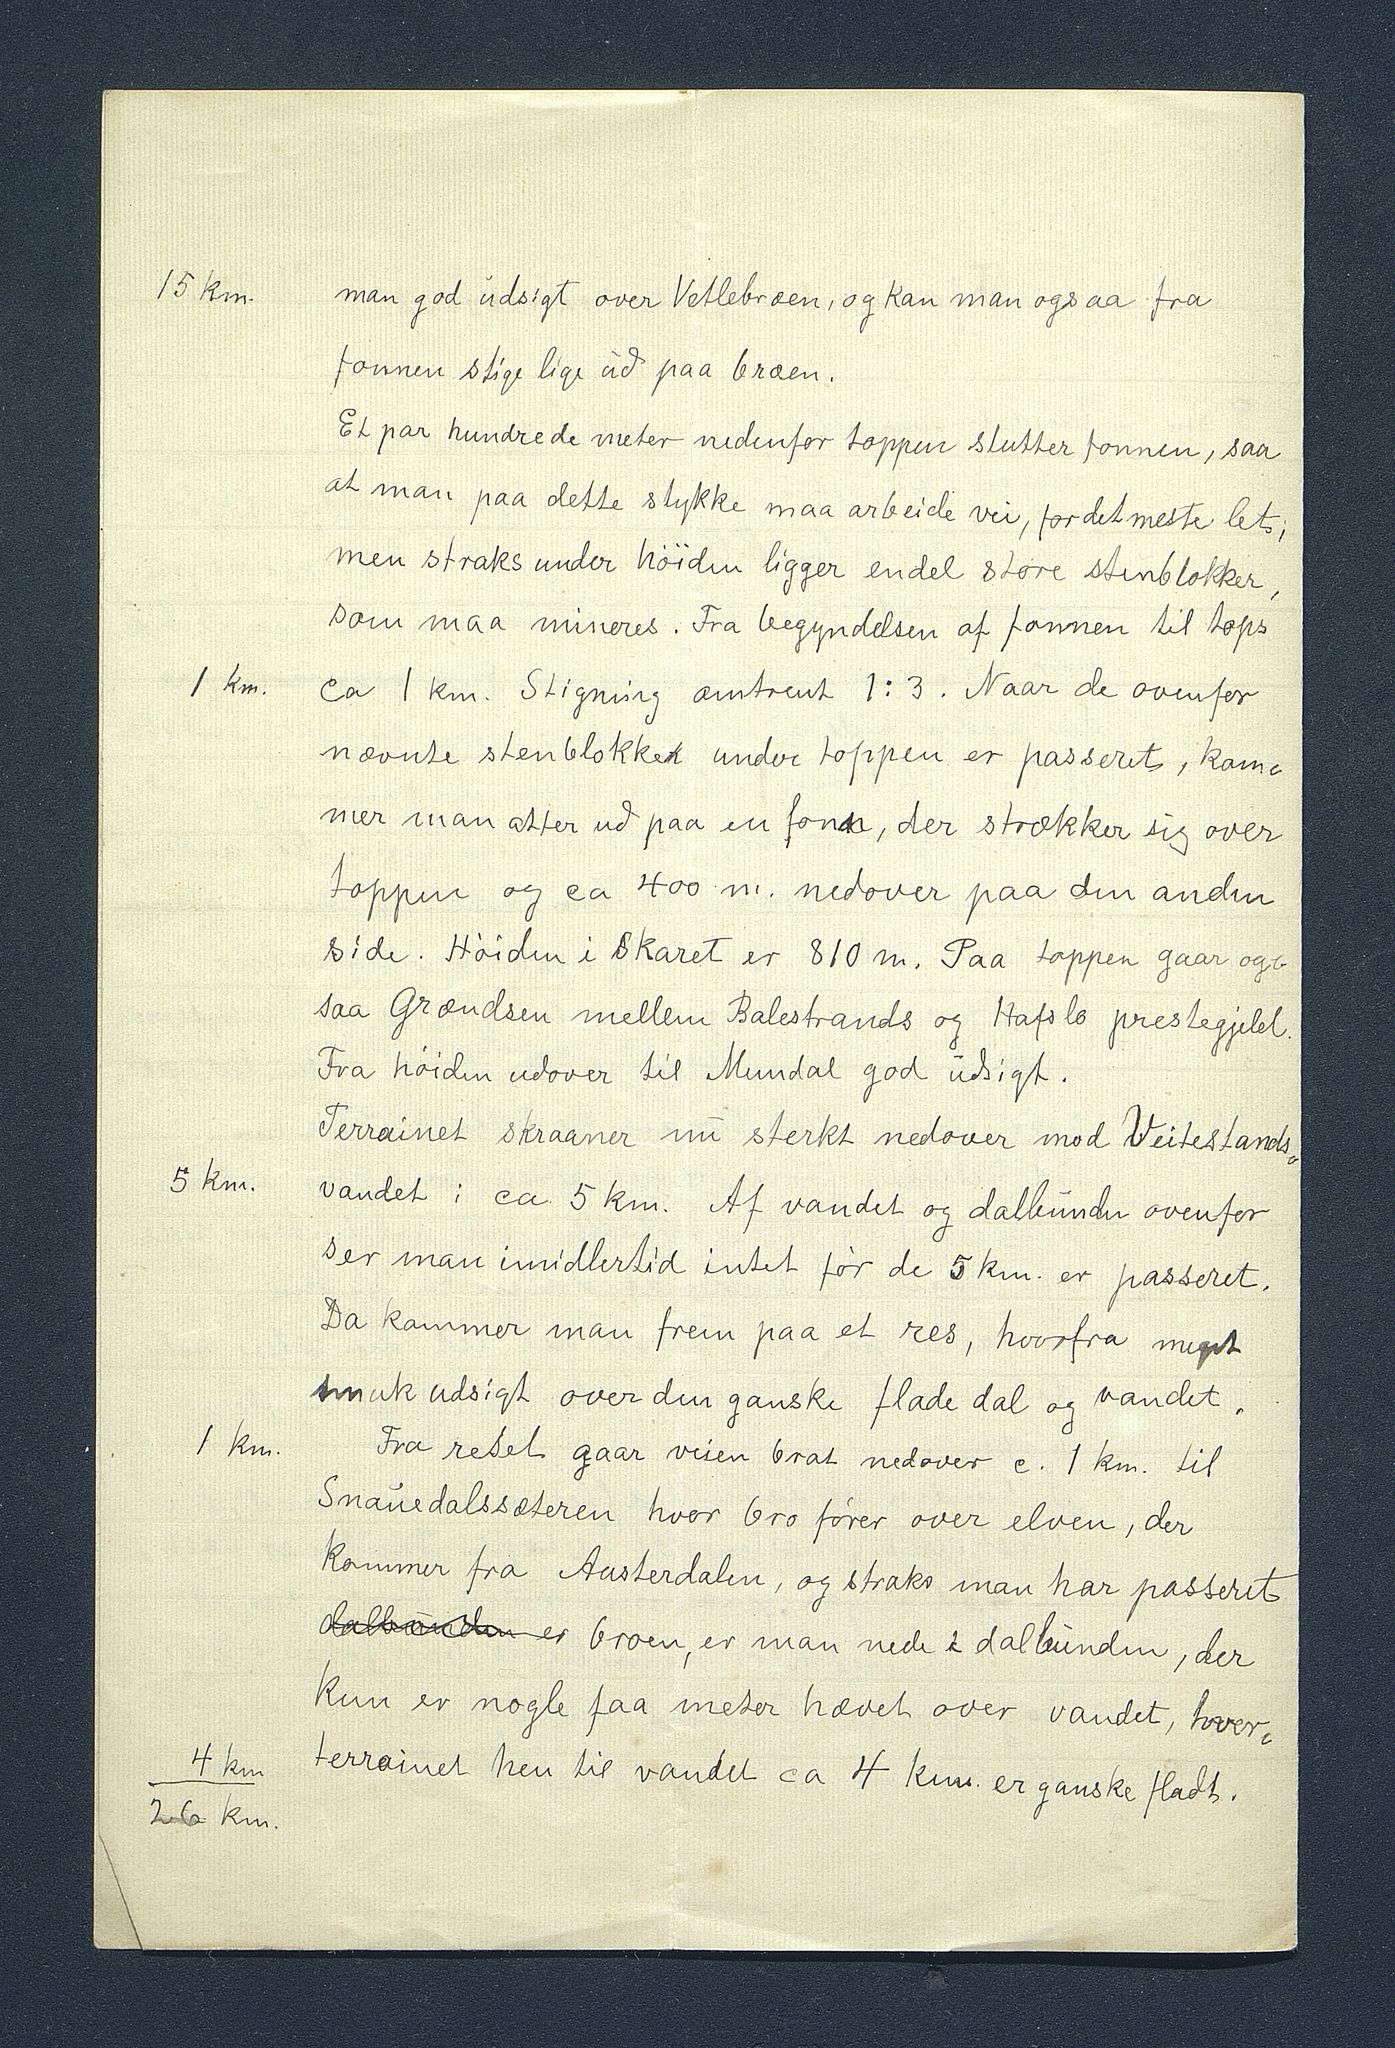 15 km. man god udsigt over Vetlebræen, og kan man ogsaa fra
fonnen stige lige ud paa bræen.
Et par hundrede meter nedenfor toppen slutter fonnen, saa
at man paa dette stykke maa arbeide vei, for det meste let;
men straks under höiden ligger endel störe stenblokker,
som maa mineres. Fra begyndelsen af fonnen til tops
1 km. ca 1 km. Stigning omtrent 1:3. Naar de ovenfor
nævnte stenblokker under toppen er passeret, kom-
mer man atter ud paa en fonn, der strækker sig over
toppen og ca 400 m. nedover paa den anden
side. Höiden i Skaret er 810 m. Paa toppen gaar og-
saa Grændsen mellem Balestrands og Hafslo prestegjeld.
Fra höiden udover til Mundal god udsigt.
Terrainet skraaner nu sterkt nedover mod Veitestands-
5 km. vandet i ca 5 km. Af vandet og dalbunden ovenfor
ser man imidlertid intet för de 5 km. er passeret.
Da kommer man frem paa et res, hvorfra meget
smuk udsigt over den ganske flade dal og vandet.
1 km. Fra reset gaar veien brat nedover c. 1 km. til
Snauedalssæteren hvor bro förer over elven, der
kommer fra Austerdalen, og straks man har passeret
dalbunden er broen, er man nede i dalbunden, der
kun er nogle faa meter hævet over vandet, hvor-
4 km terrainet hen til vandet ca 4 km. er ganske fladt.
26 km.